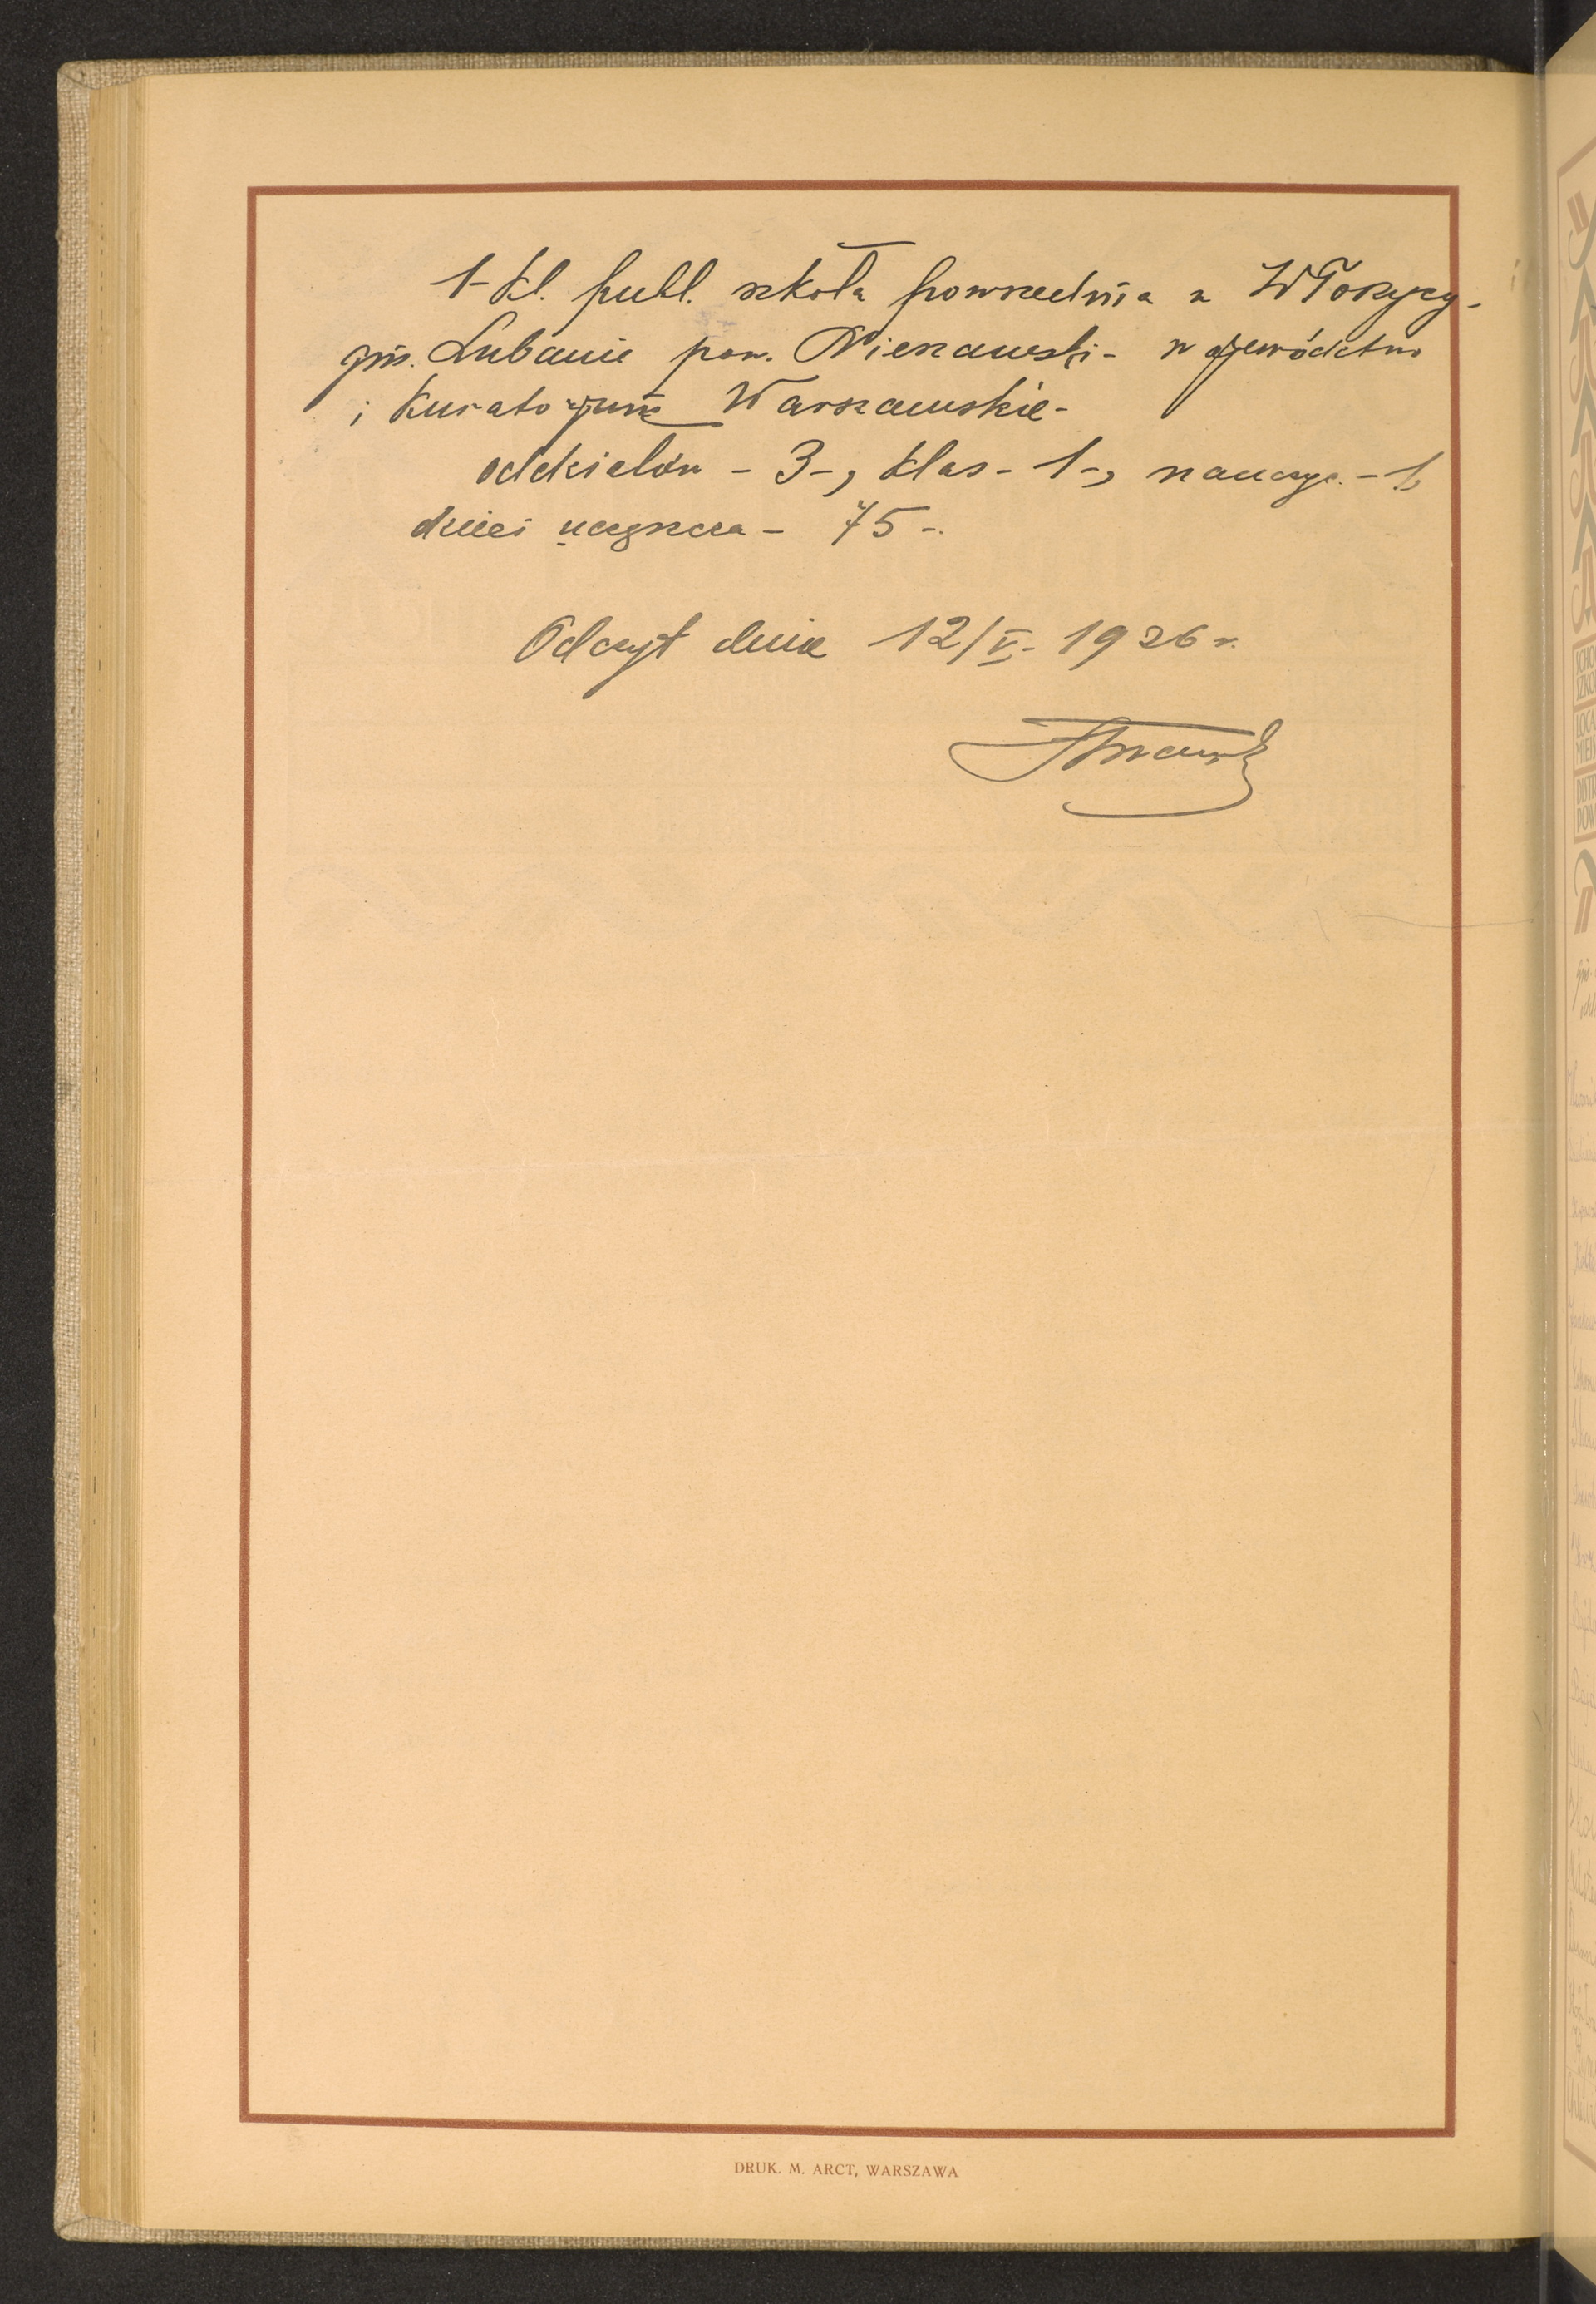 1-kl. publ. szkoła powszednia w Włoszycy-
gm. Lubanie pow. Nieszawski- województwo
i Kuratorjum Warszawskie-
oddziałów - 3-, klas - 1-, nauczyc. - 1,
dzieci uczęszcza - 75 -.
Odczyt dnia 12/V- 1926 r.
DRUK. M. ARCT, WARSZAWA